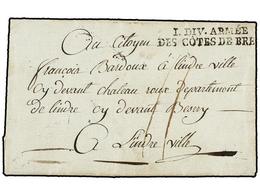 I. DIV. ARMÉE
DES CÔTES DE BRE
Au Citoyen
françois Bardoux à lindre ville
cy devant chateau roux departement
de lindre cy devant Berry
A Lindre ville